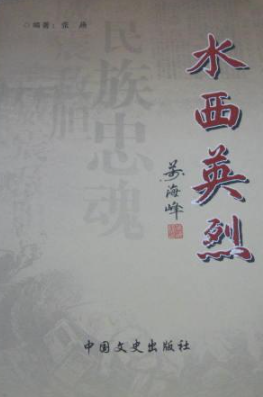 水西英烈
万海峰
编著：张
民族忠魂
中国文史出版社